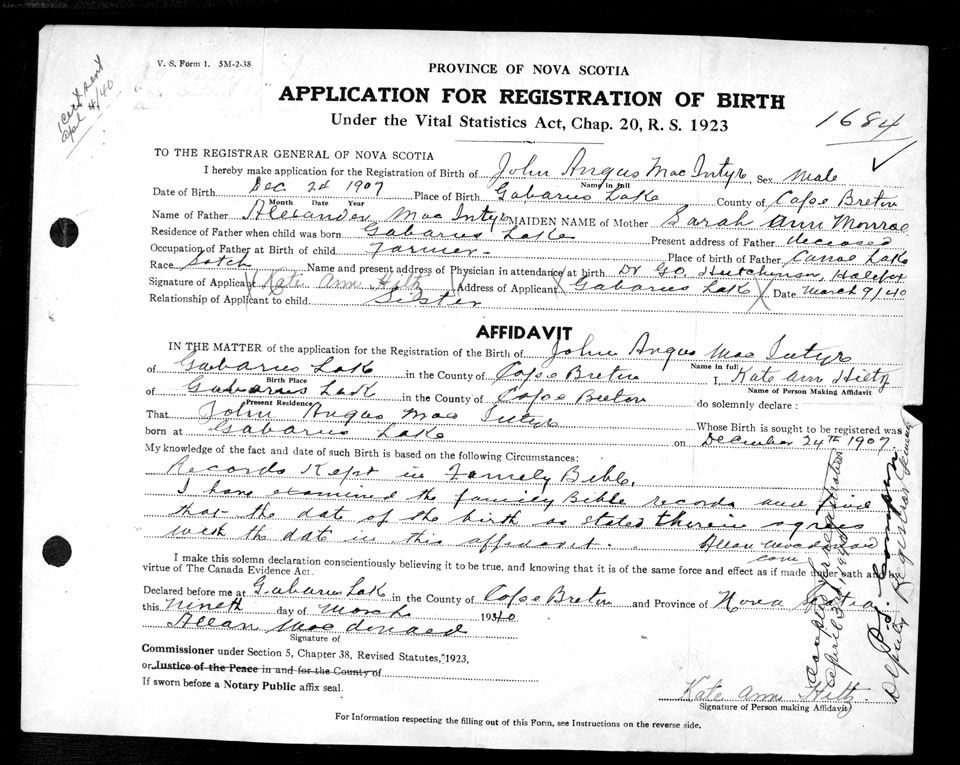 V. S. Form 1. 5M-2-38
1 Cert sent
April 4/40
PROVINCE OF NOVA SCOTIA
APPLICATION FOR REGISTRATION OF BIRTH
Under the Vital Statistics Act, Chap. 20, R. S. 1923
1684
TO THE REGISTRAR GENERAL OF NOVA SCOTIA
I hereby make application for the Registration of Birth of John Angus Mac Intyre Sex Male
Name in full
Date of Birth Dec 24 1907 Place of Birth Gabarus Lake County of Cape Breton
Month Date Year
Name of Father Alexander Mac Intyre MAIDEN NAME of Mother Sarah Ann Monroe
Residence of Father when child was born Gabarus Lake Present address of Father deceased
Occupation of Father at Birth of child Farmer Place of birth of Father Canoe Lake
Race Sotch Name and present address of Physician in attendance at birth Dr G.O. Hutchinson, Halifax
Signature of Applicant Kate Ann Hiltz Address of Applicant Gabarus Lake Date March 9/40
Relationship of Applicant to child Sister
AFFIDAVIT
IN THE MATTER of the application for the Registration of the Birth of John Angus Mac Intyre
Name in full
of Gabarus Lake in the County of Cape Breton I Kate Ann Hiltz
Birth Place Name of Person Making Affidavit
of Gabarus Lak in the County of Cape Breton do solemnly declare :
Present Residence
That John Angus Mac Intyre Whose Birth is sought to be registered was
born at Gabarus Lake on December 24th 1907
My knowledge of the fact and date of such Birth is based on the following Circumstances:
Records Kept in Famely Bible.
I have examined the family Bible records and find
that the date of the birth as stated therein agrees
with the date in this affidavit. Allan Macdonald
com
I make this solemn declaration conscientiously believing it to be true, and knowing that it is of the same force and effect as if made under oath and by
virtue of The Canada Evidence Act.
Declared before me at Gabarus Lak in the County of Cape Breton and Province of Nova Scotia
this Nineth day of March 1940
Allan Mac donald
Signature of
Commissioner under Section 5, Chapter 38, Revised Statutes, 1923,
or Justice of the Peace in and for the County of
If sworn before a Notary Public affix seal.
Kate Ann Hiltz
Signature of Person making Affidavit
accepted for registration
April 3rd 1940
Deputy Registrar General
For Information respecting the filling out of this Form, see Instructions on the reverse side.